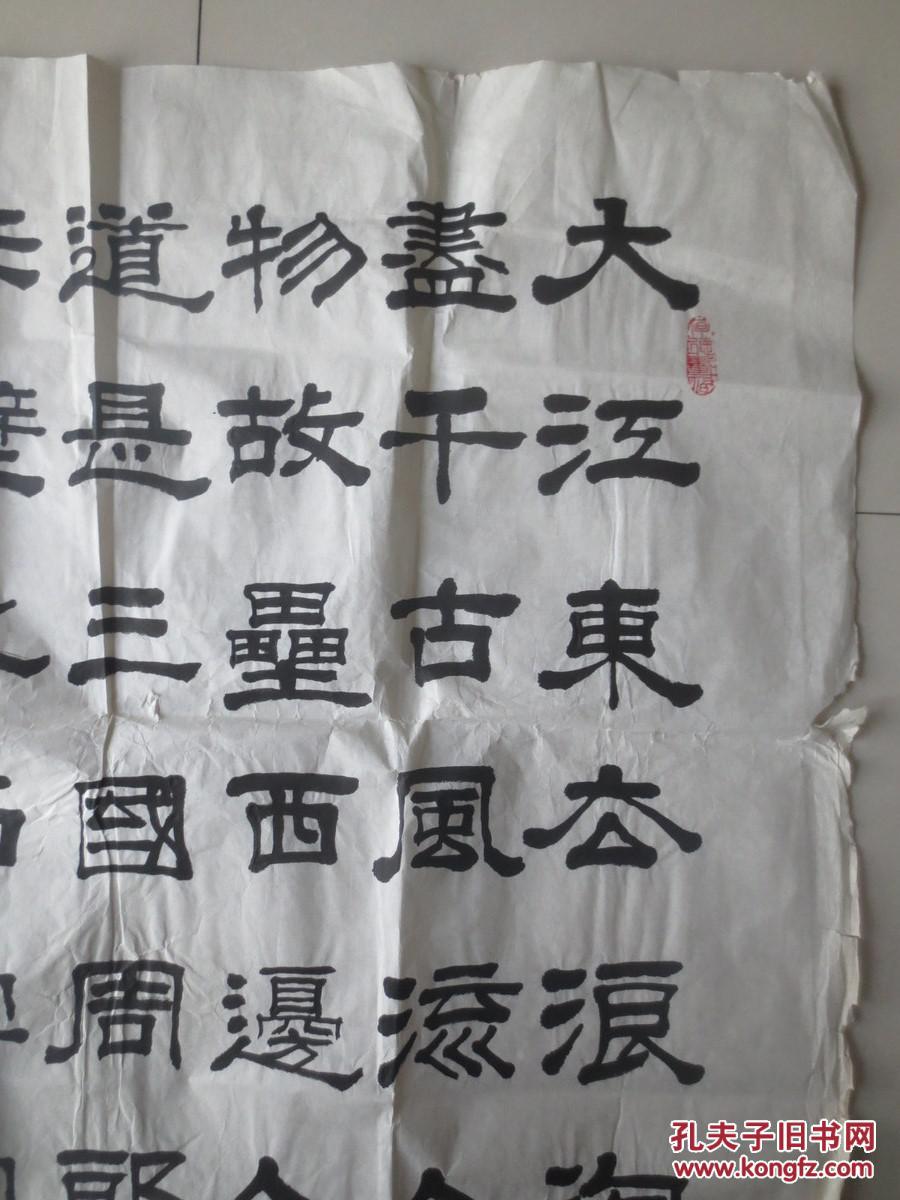 大江東去浪淘
盡千古風流人
物故壘西邊人
道是三國周郎
孔夫子旧书网
www.kongfz.com